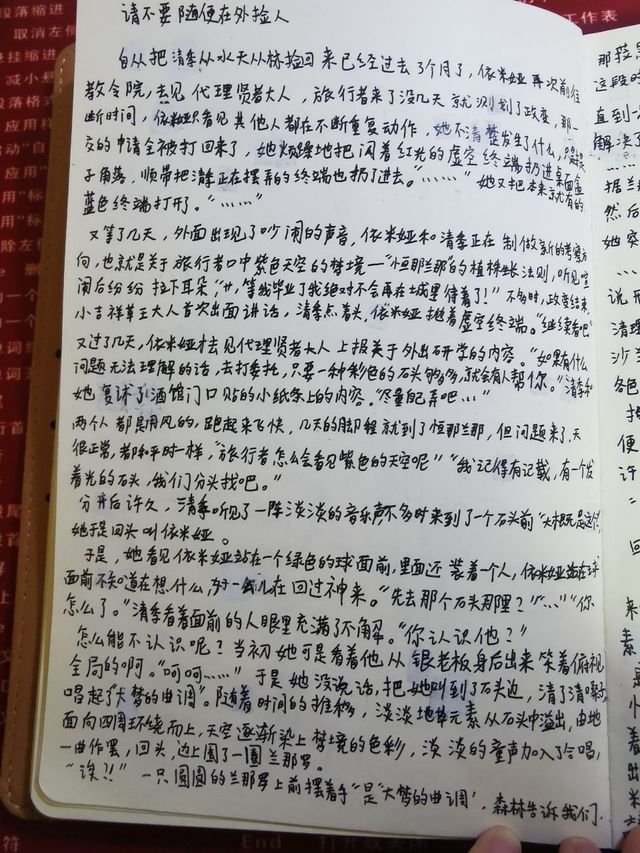 请不要随便在外捡人
自从把清季从水天丛林捡回来已经过去3个月了，依米娅再次前往
教令院，去见代理贤者大人，旅行者来了没几天就测划了政变，那一
断时间，依米娅只看见其他人都在不断重复动作，她不清楚发生了什么，
交的申请全被打回来了，她烦躁地把闪着红光的虚空终端扔进桌面盒
子角落，顺带把清季正在摆弄的终端也扔了进去。“……”她又把本来就有的
蓝色终端打开了。“……”
又等了几天，外面出现了吵闹的声音，依米娅和清季正在制做新的考察方
向，也就是关于旅行者口中紫色天空的梦境—“恒那兰那”的植株生长法则，听见喧
闹后纷纷拉下耳朵，“，等我毕业了我绝对不会再在城里待着了！”不多时，政变结束，
小吉祥草王大人首次出面讲话，清季点着头，依米娅挑着虚空终端。“继续看吧”
又过了几天，依米娅才去见代理贤者大人上报关于外出研学的内容。“如果有什么
问题无法理解的话，去打委托，只要一种紫色的石头够多，就会有人帮你。”清季和
她复述了酒馆门口贴的小纸条上的内容。“尽量自己弄吧…”
两个人都是用风的，跑起来飞快，几天的脚程就到了恒那兰那，但问题来了，天
很正常，都和平时一样，“旅行者怎么会看见紫色的天空呢”“我记得有记载，有一个发
着光的石头，我们分头找吧。”
分开后许久，清季听见了一阵淡淡的音乐声不多时来到了一个石头前“大概就是这个”
她于是回头叫依米娅。
于是，她看见依米娅站在一个绿色的球面前，里面还装着一个人，依米娅站在球
面前不知道在想什么，好一会儿在回过神来。“先去那个石头那里？”“…”“你
怎么了。”清季看着面前的人眼里充满了不解。“你认识他？”
怎么能不认识呢？当初她可是看着他从银老板身后出来笑着俯视
全局的啊。“呵呵……”于是她没说话，把她叫到了石头边，清了清嗓子
唱起了“大梦的曲调”。随着时间的推移，淡淡地草元素从石头中溢出，由地
面向四周环绕而上，天空逐渐染上梦境的色彩，淡淡的童声加入了合唱，
一曲作罢，回头，边上围了一圈兰那罗。
“诶?!”一只圆圆的兰那罗上前摆着手“是‘大梦的曲调’，森林告诉我们，